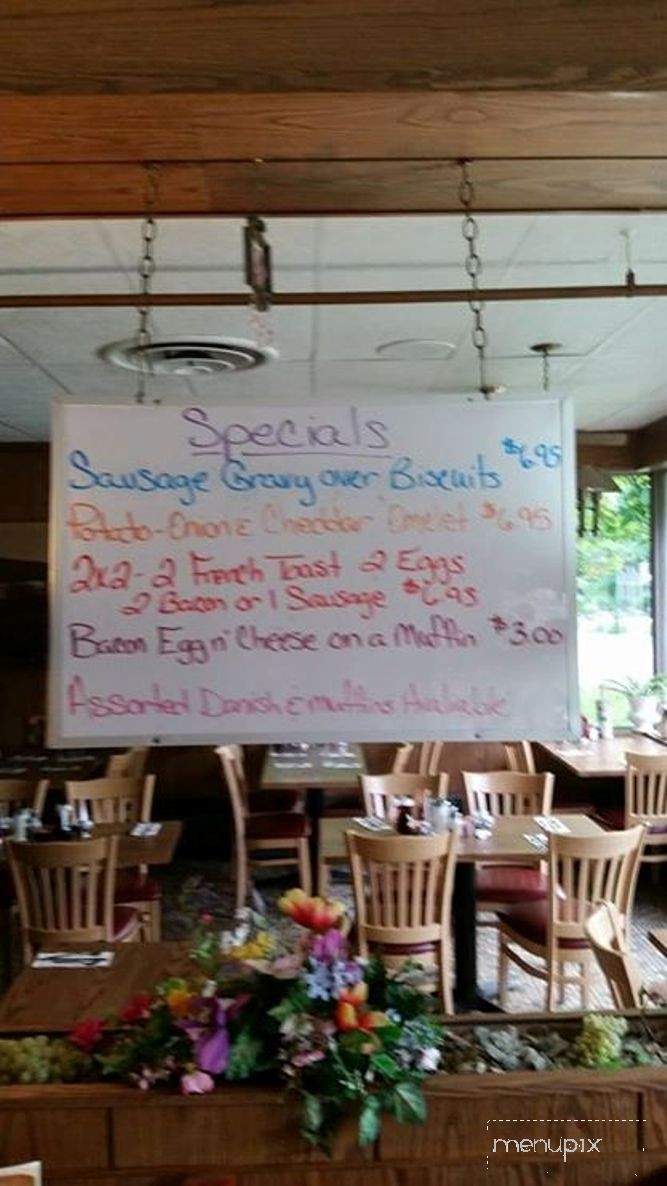 Specials
Sausage Gravy over Biscuits $6.95
Potato-Onion & Cheddar Omelet $6.95
2x2-2 French Toast 2 Eggs
2 Bacon or 1 Sausage $6.95
Bacon Egg n' Cheese on a Muffin $3.00
Assorted Danish & muffins Available
menupix